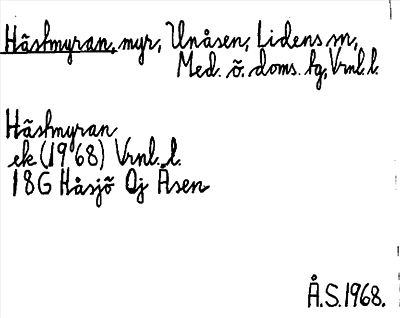 Hästmyran, myr, Unåsen, Lidens sn,
Med. ö. doms. tg, Vrnl. l.
Hästmyran
ek (1968) Vrnl. l.
18G Håsjö 0j Åsen
Å.S. 1968.